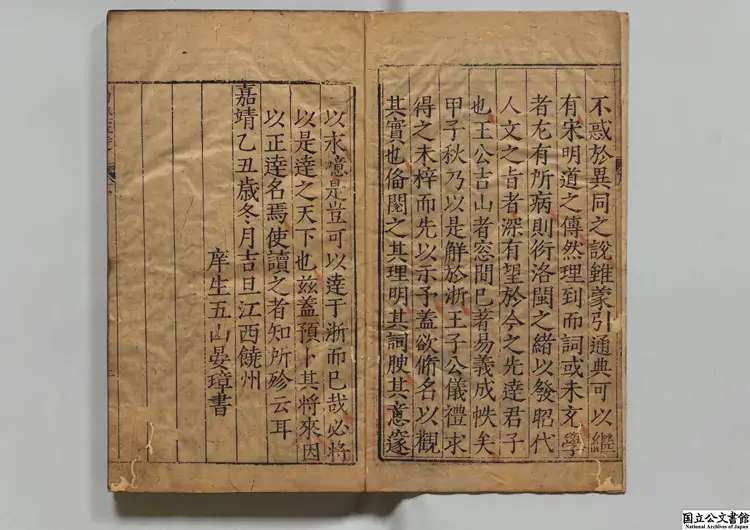 不惑於異同之說雖蒙引通典可以繼
有宋明道之傳然理到而詞或未充學
者尤有所病則衍洛閩之緒以發昭代
人文之旨者深有望於今之先達君子
也王公吉山者窓閒巳著易義成帙矣
甲子秋乃以是觧於浙王子公儀禮求
得之未梓而先以示予蓋欲脩名以觀
其實也俻閱之其理明其詞腴其意邃
以求噫是豈可以達于浙而巳哉必將
以是達之天下也茲蓋預卜其將來因
以正達名焉使讀之者知所珍云耳
嘉靖乙丑歲冬月吉旦江西饒州
庠生五山晏璋書
国立公文書館
National Archives of Japan